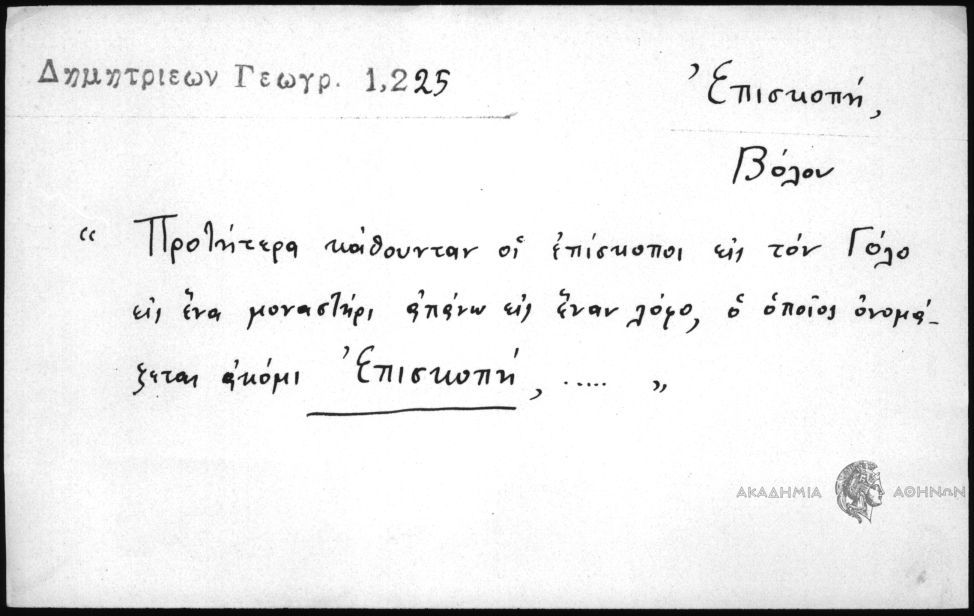 Δημητριεων Γεωγρ. 1,225
Ἐπισκοπή,
Βόλου
“ Προτήτερα κάθουνταν οἱ ἐπίσκοποι εἰς τόν Γόλο
εἰς ἕνα μοναστήρι ἀπάνω εἰς ἕναν λόφο, ὁ ὁποῖος ὀνομά-
ζεται ἀκόμι Ἐπισκοπή, ..... ”
ΑΚΑΔΗΜΙΑ ΑΘΗΝΩΝ